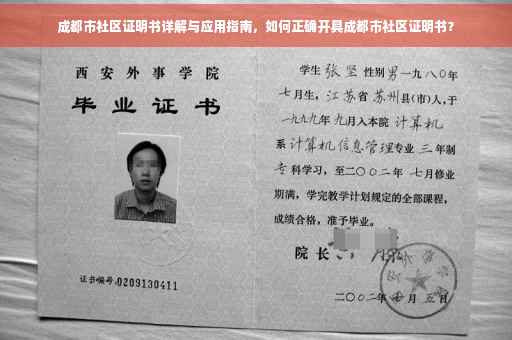 成都市社区证明书详解与应用指南，如何正确开具成都市社区证明书？
西安外事学院
毕业证书
证书编号:0209130411
学生 张坚 性别男一九八〇年
七月生，江苏省 苏州县(市)人,于
一九九九年九月入本院 计算机
系 计算机信息管理专业 三 年制
专 科学习，至二〇〇二年 七月修业
期满，学完教学计划规定的全部课程，
成绩合格，准予毕业。
院长
二〇〇二年 月 五日